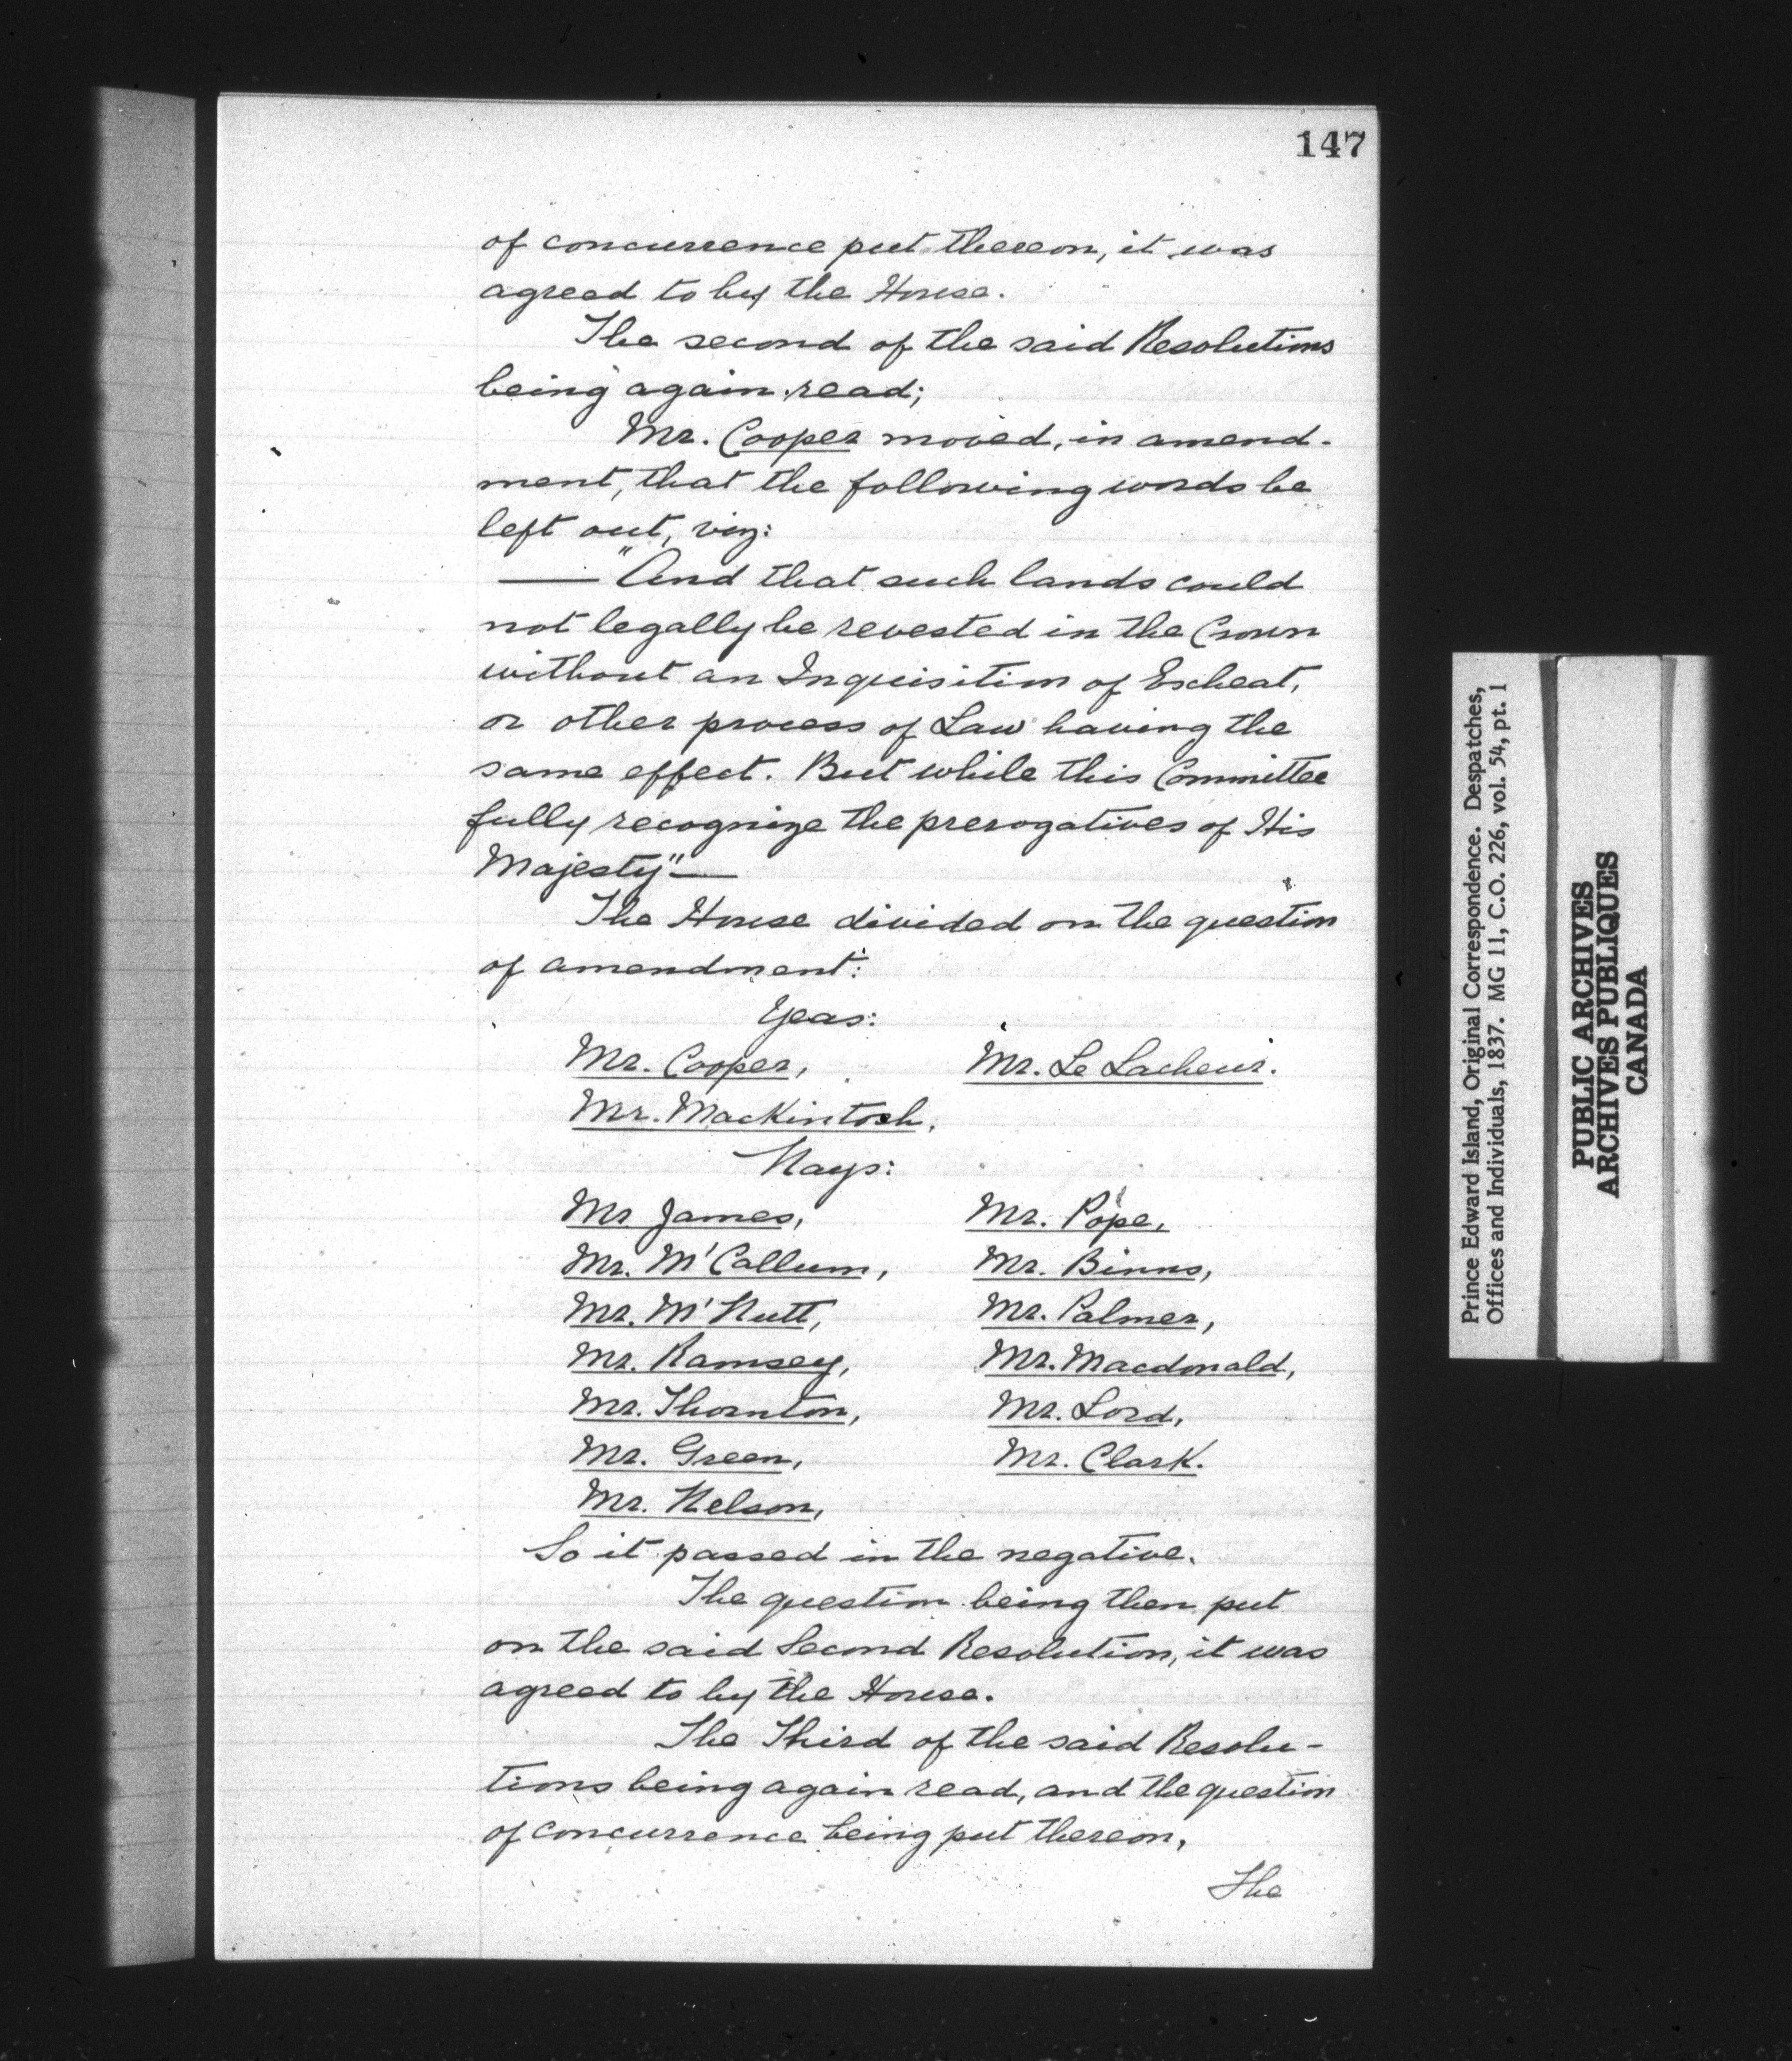 147
of concurrence put thereon, it was
agreed to by the House.
The second of the said Resolutions
being again read;
Mr. Cooper moved, in amend-
ment, that the following words be
left out, viz:
— "And that such lands could
not legally be revested in the Crown
without an Inquisition of Escheat,
or other process of Law having the
same effect. But while this Committee
fully recognize the prerogatives of His
Majesty" —
The House divided on the question
of amendment:
Yeas:
Mr. Cooper, Mr. Le Lacheur.
Mr. MacKintosh,
Nays:
Mr James, Mr. Pope,
Mr. M'Callum, Mr. Binns,
Mr. M'Nutt, Mr. Palmer,
Mr. Ramsey, Mr. Macdonald,
Mr. Thornton, Mr. Lord,
Mr. Green, Mr. Clark.
Mr. Nelson,
So it passed in the negative.
The question being then put
on the said Second Resolution, it was
agreed to by the House.
The Third of the said Resolu-
tions being again read, and the question
of concurrence being put thereon,
The
Prince Edward Island, Original Correspondence. Despatches,
Offices and Individuals, 1837. MG 11, C.O. 226, vol. 54, pt. 1
PUBLIC ARCHIVES
ARCHIVES PUBLIQUES
CANADA